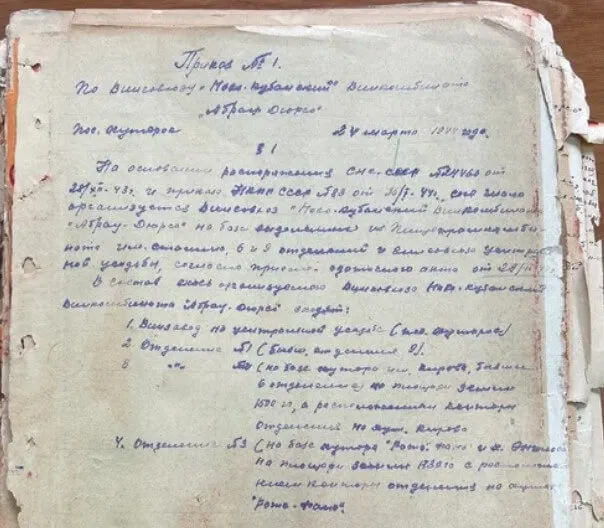 Приказ № 1.
По Винсовхозу "Ново-Кубанский" Винкомбината
"Абрау-Дюрсо"
пос. Хуторок 24 марта 1944 года.
§ 1
На основании распоряжения СНК СССР № 24460 от
28/XII-43г. и приказа НКПП СССР № 83 от 26/I-44г. сего числа
организуется Винсовхоз "Ново-Кубанский" Винкомбината
"Абрау-Дюрсо" на базе выделенных из Пищепромкомби-
ната им. Сталина, 6 и 9 отделений и винзавода централь-
ной усадьбы, согласно приемо-сдаточного акта от 28/II-44г.
В состав вновь организуемого Винсовхоза Ново-Кубанский
Винкомбината "Абрау-Дюрсо" входят:
1. Винзавод на центральной усадьбе (пос. Хуторок)
2. Отделение № 1 (бывш. отделения 9).
3 "-" (на базе хутора им. Кирова, бывшего
6 отделение) на площади земли
1500 га, с расположением конторы
отделения на хут. Кирова
4. Отделение № 3 (на базе хутора "Роте-Фане" и х. Энгельса
на площади земли га с располож-
нием конторы отделения на хуторе
"Роте-Фане".